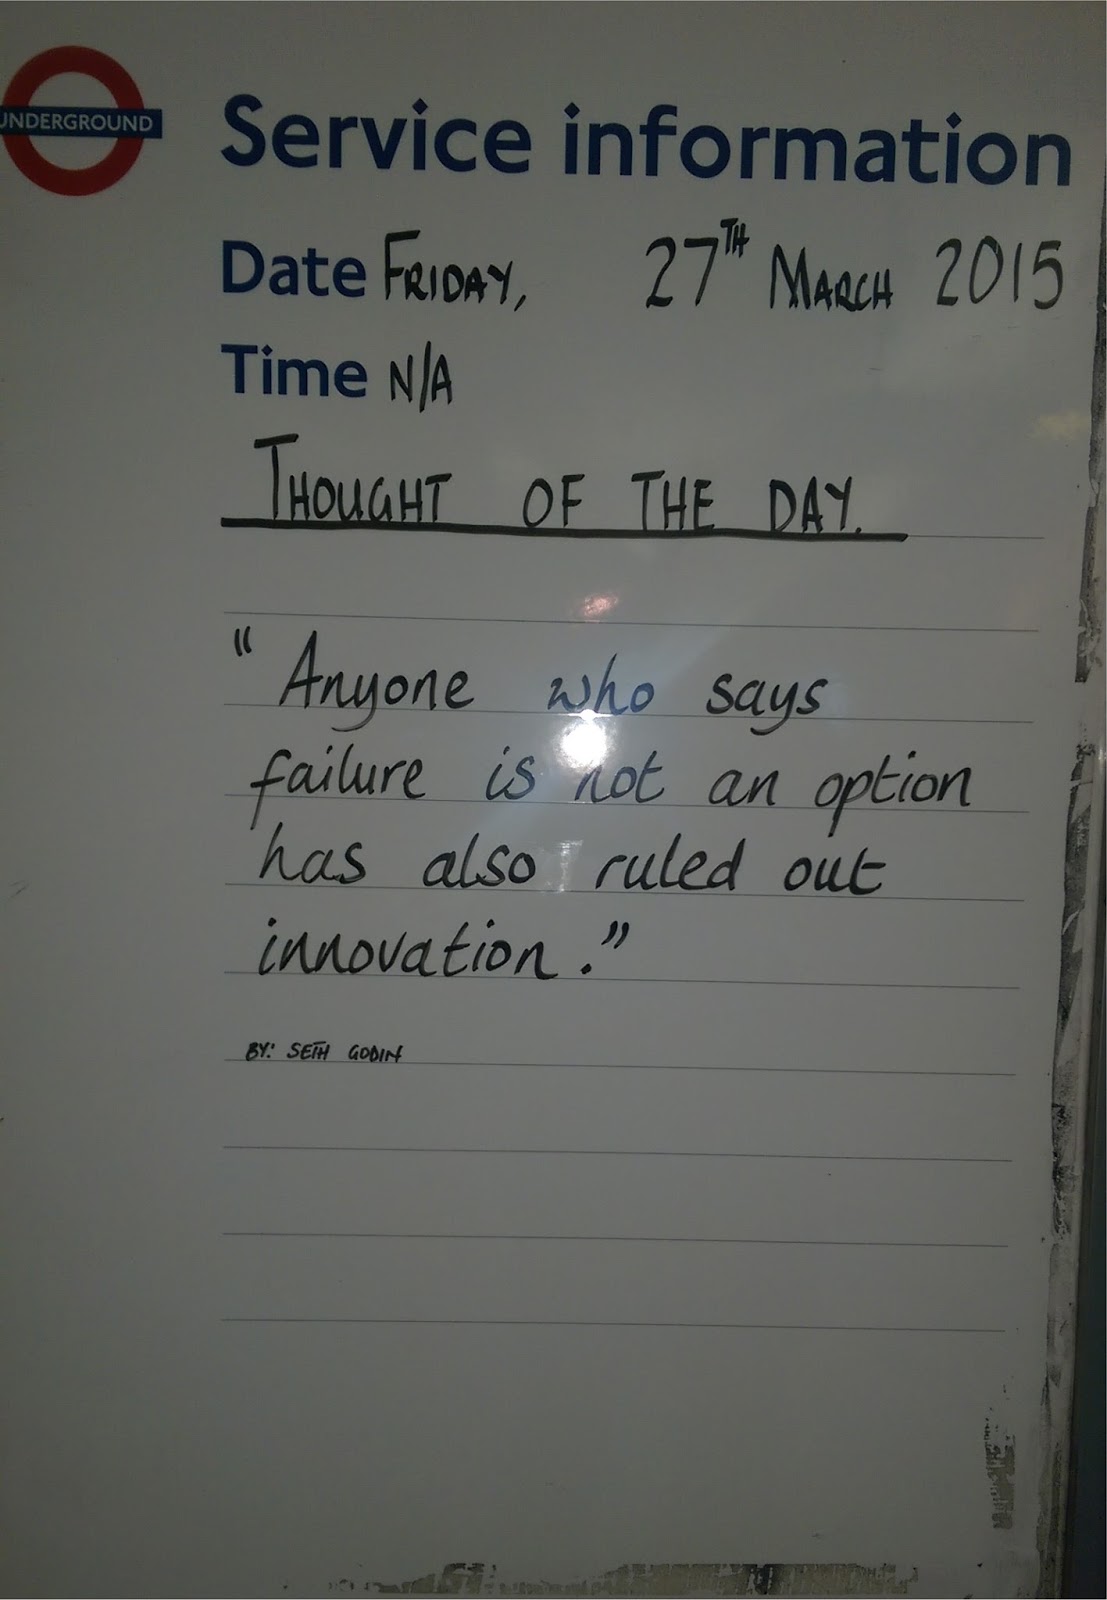 UNDERGROUND
Service information
Date FRIDAY, 27TH MARCH 2015
Time N/A
THOUGHT OF THE DAY.
"Anyone who says
failure is not an option
has also ruled out
innovation."
BY: SETH GODIN